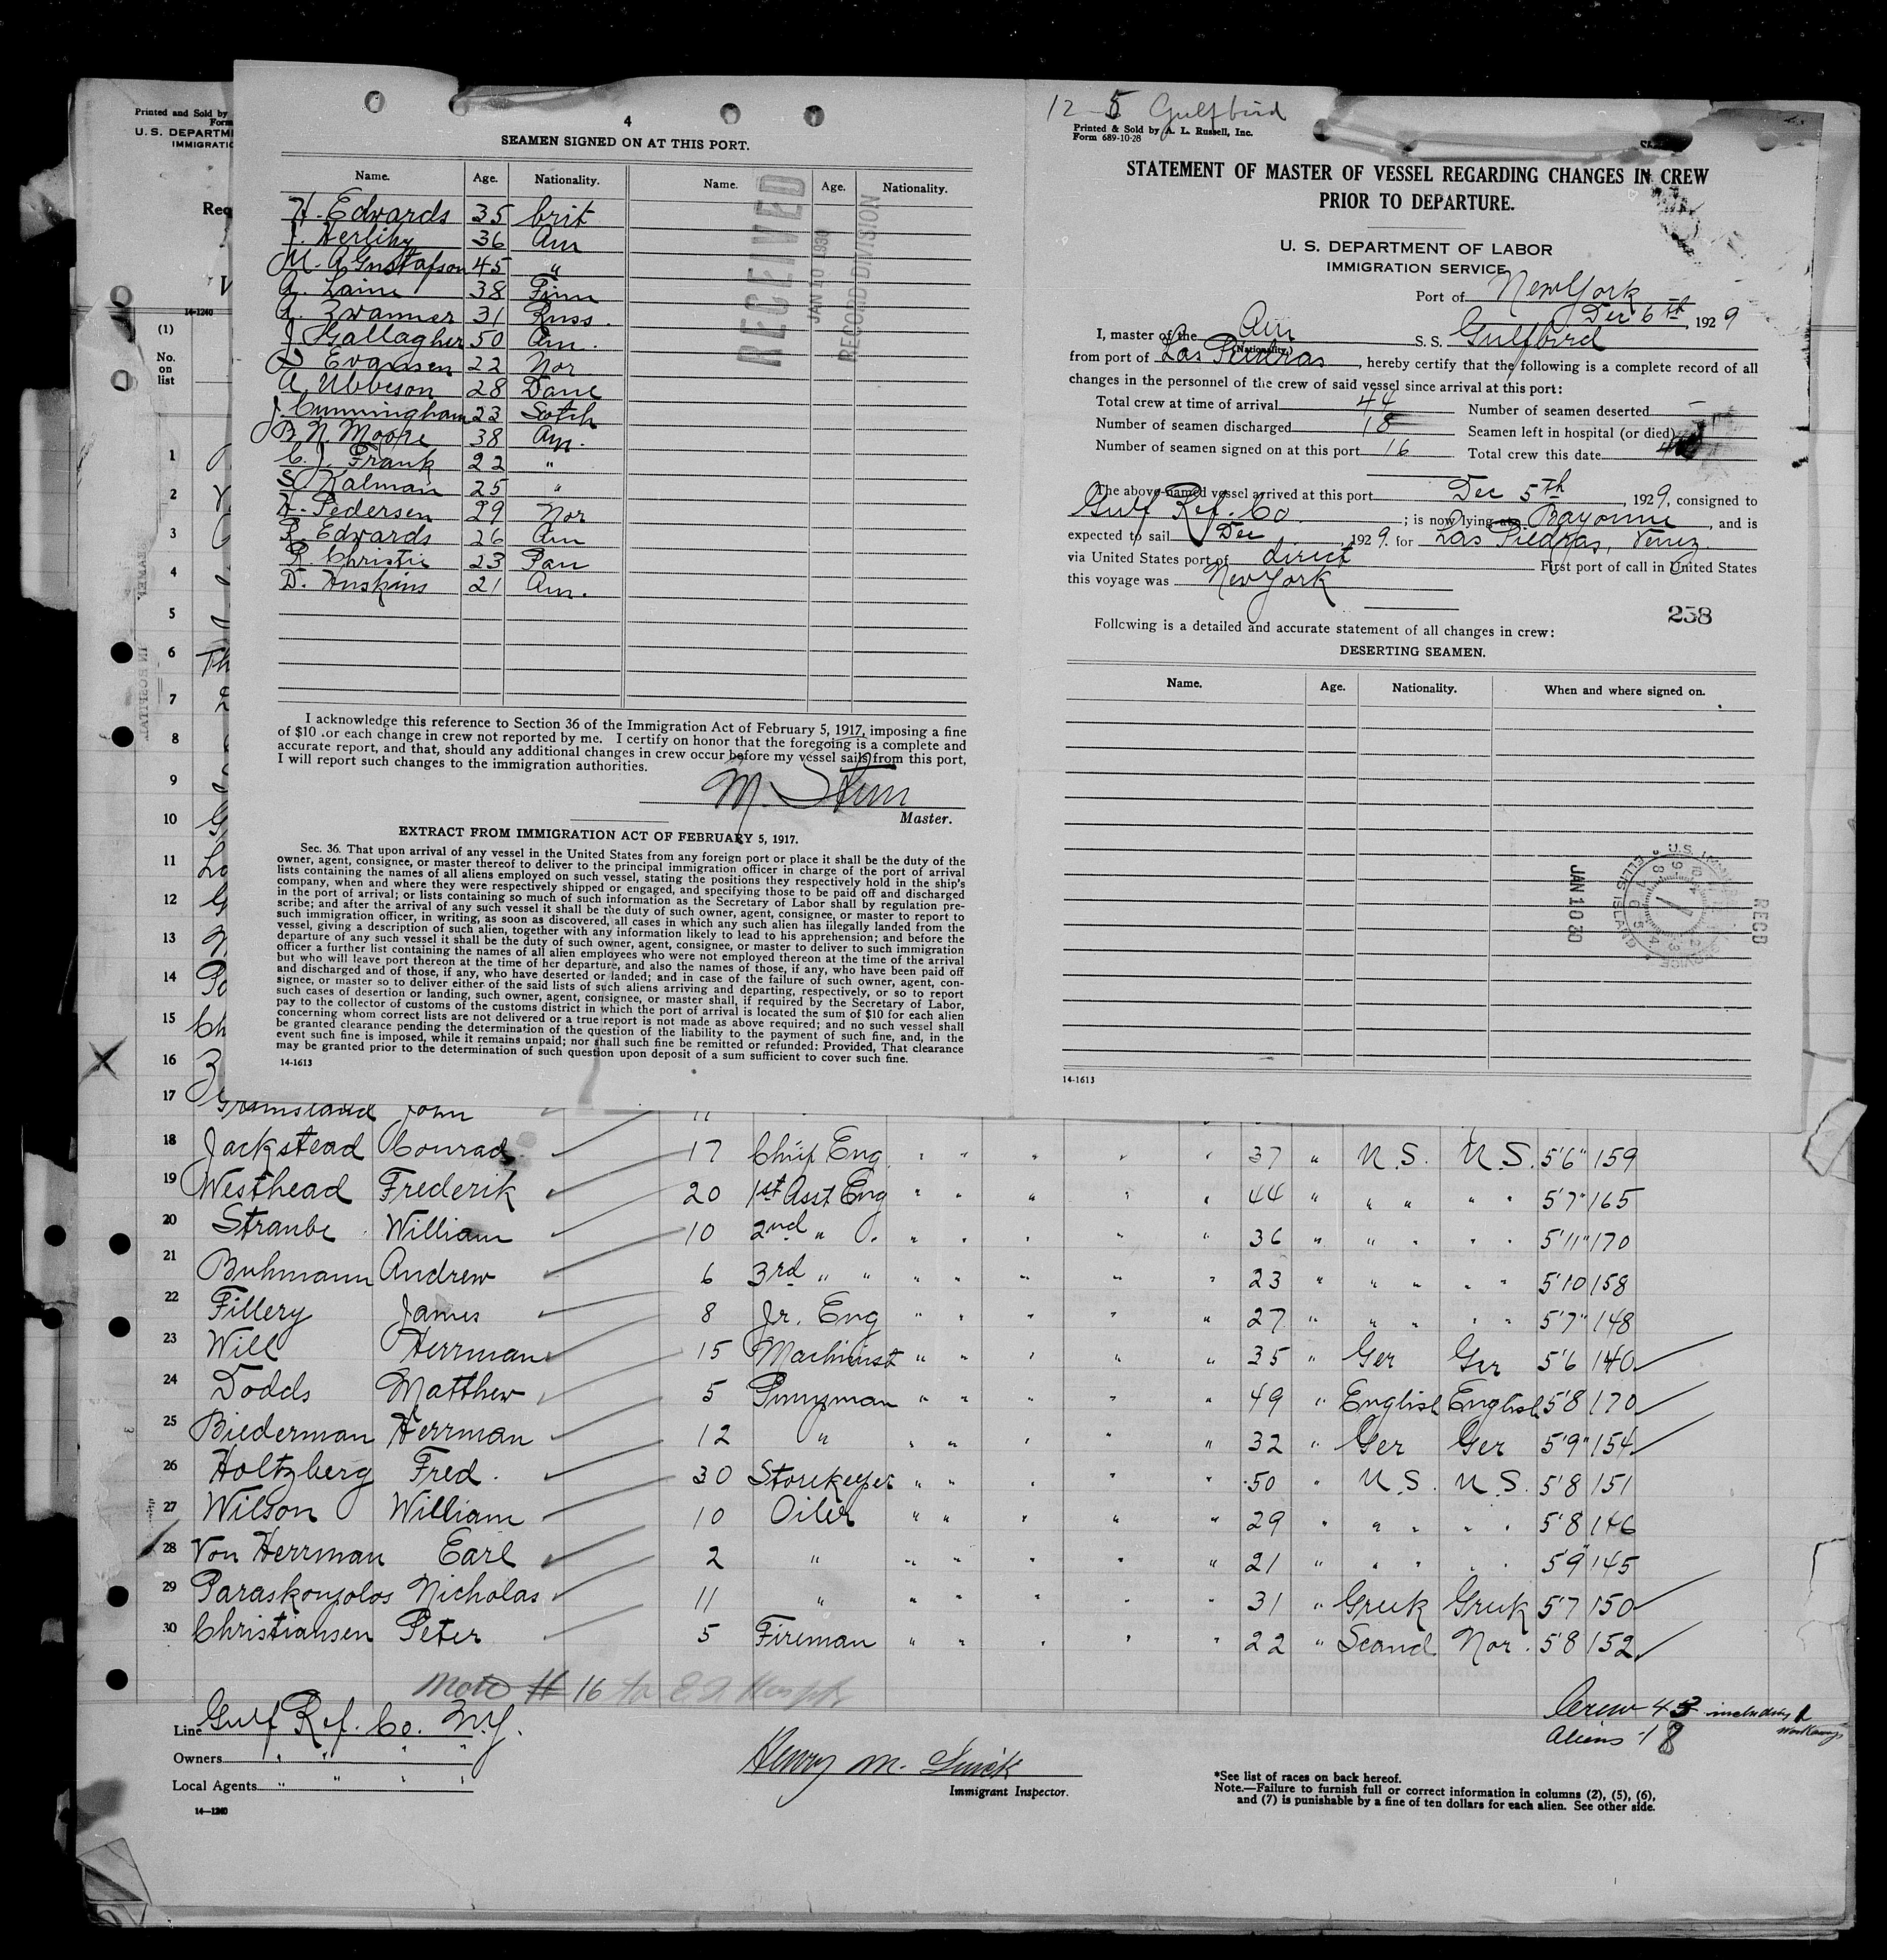 Printed and Sold by
Form
U. S. DEPARTM
IMMIGRATIO
Req
14-1240
(1)
No.
on
list
1
2
3
4
5
6
7
8
9
10
11
12
13
14
15
16
17
4
SEAMEN SIGNED ON AT THIS PORT.
Name. Age. Nationality. Name. Age. Nationality.
H. Edwards 35 brit
J. Herlihy 36 Am
M. A Gustafson 45 "
A. Laine 38 Finn
A. Zwanner 31 Russ.
J Gallagher 50 Am.
Evansen 22 Nor
A. Ubbeson 28 Dane
J. Cunningham 23 Scotch
B. N. Moore 38 Am.
C. J. Frank 22 "
S Kalman 25 "
H. Pedersen 29 Nor
R. Edwards 26 Am
R. Christie 23 Pan
D. Huskans 21 Am.
RECEIVED
JAN 10 1930
RECORD DIVISION
I acknowledge this reference to Section 36 of the Immigration Act of February 5, 1917, imposing a fine
of $10 .or each change in crew not reported by me. I certify on honor that the foregoing is a complete and
accurate report, and that, should any additional changes in crew occur before my vessel sails from this port,
I will report such changes to the immigration authorities.
M.
Master.
EXTRACT FROM IMMIGRATION ACT OF FEBRUARY 5, 1917.
Sec. 36. That upon arrival of any vessel in the United States from any foreign port or place it shall be the duty of the
owner, agent, consignee, or master thereof to deliver to the principal immigration officer in charge of the port of arrival
lists containing the names of all aliens employed on such vessel, stating the positions they respectively hold in the ship's
company, when and where they were respectively shipped or engaged, and specifying those to be paid off and discharged
in the port of arrival; or lists containing so much of such information as the Secretary of Labor shall by regulation pre-
scribe; and after the arrival of any such vessel it shall be the duty of such owner, agent, consignee, or master to report to
such immigration officer, in writing, as soon as discovered, all cases in which any such alien has illegally landed from the
vessel, giving a description of such alien, together with any information likely to lead to his apprehension; and before the
departure of any such vessel it shall be the duty of such owner, agent, consignee, or master to deliver to such immigration
officer a further list containing the names of all alien employees who were not employed thereon at the time of the arrival
but who will leave port thereon at the time of her departure, and also the names of those, if any, who have been paid off
and discharged and of those, if any, who have deserted or landed; and in case of the failure of such owner, agent, con-
signee, or master so to deliver either of the said lists of such aliens arriving and departing, respectively, or so to report
such cases of desertion or landing, such owner, agent, consignee, or master shall, if required by the Secretary of Labor,
pay to the collector of customs of the customs district in which the port of arrival is located the sum of $10 for each alien
concerning whom correct lists are not delivered or a true report is not made as above required; and no such vessel shall
be granted clearance pending the determination of the question of the liability to the payment of such fine, and, in the
event such fine is imposed, while it remains unpaid; nor shall such fine be remitted or refunded: Provided, That clearance
may be granted prior to the determination of such question upon deposit of a sum sufficient to cover such fine.
14-1613
12-5 Gulfbird
Printed & Sold by A. L. Russell, Inc.
Form 689-10-28
STATEMENT OF MASTER OF VESSEL REGARDING CHANGES IN CREW
PRIOR TO DEPARTURE.
U. S. DEPARTMENT OF LABOR
IMMIGRATION SERVICE
Port of New York
Dec 6th, 1929
I, master of the Am S. S. Gulfbird
(Nationality)
from port of Las Piedras, hereby certify that the following is a complete record of all
changes in the personnel of the crew of said vessel since arrival at this port:
Total crew at time of arrival 44 Number of seamen deserted -
Number of seamen discharged 18 Seamen left in hospital (or died)
Number of seamen signed on at this port 16 Total crew this date
The above-named vessel arrived at this port Dec 5th, 1929, consigned to
Gulf Ref. Co. ; is now lying at Bayonne, and is
expected to sail Dec, 1929. for Las Piedras, Venez.
via United States port of direct First port of call in United States
this voyage was New York
238
Following is a detailed and accurate statement of all changes in crew:
DESERTING SEAMEN.
Name. Age. Nationality. When and where signed on.
JAN 10 30
RECD
14-1613
John 11
18 Jackstead Conrad 17 Chief Eng. " " " " " 37 " U.S. U.S. 5'6" 159
19 Westhead Frederik 20 1st Asst Eng " " " " " 44 " " " " " 5'7" 165
20 Straube William 10 2nd " " " " " " 36 " " " " " 5'11" 170
21 Buhmann Andrew 6 3rd " " " " " " " 23 " " " " " 5'10 158
22 Fillery James 8 Jr. Eng " " " " " 27 " " " " " 5'7" 148
23 Will Herrman 15 Machinist " " " " " 35 " Ger Ger 5'6 140
24 Dodds Matthew 5 Pumpman " " " " " 49 " English English 5'8 170
25 Biederman Herrman 12 " " " " " " 32 " Ger Ger 5'9" 154
26 Holtzberg Fred. 30 Storekeeper " " " " " 50 " U.S. U.S. 5'8 151
27 Wilson William 10 Oiler " " " " " 29 " " " " " 5'8 146
28 Von Herrman Earl 2 " " " " " " 21 " " " " " 5'9" 145
29 Paraskopolos Nicholas 11 " " " " " " 31 " Greek Greek 5'7 150
30 Christiansen Peter 5 Fireman " " " " " 22 " Scand. Nor. 5'8 152
Note # 16 to
Line Gulf Ref. Co. N.Y.
Owners " " " "
Local Agents " " " "
14-1240
Henry M.
Immigrant Inspector.
Crew 43 including 1
workaway
Aliens 18
*See list of races on back hereof.
Note.—Failure to furnish full or correct information in columns (2), (5), (6),
and (7) is punishable by a fine of ten dollars for each alien. See other side.